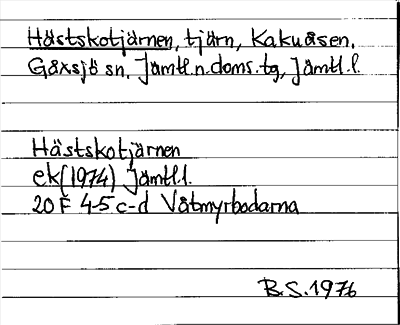 Hästskotjärnen, tjärn, Kakuåsen.
Gåxsjö sn, Jämtl.n.doms.tg, Jämtl.l.
Hästskotjärnen
ek (1974) Jämtl.l.
20 F 4-5 c-d Våtmyrbodarna
B.S. 1976